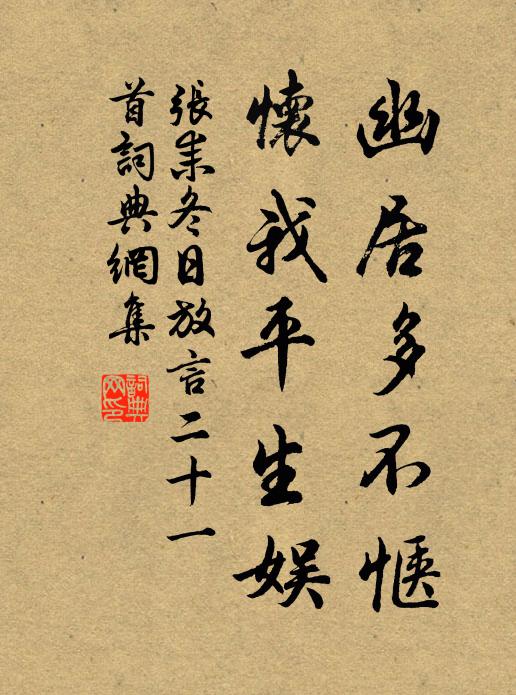 幽居多不惬
懷我平生娛
張耒冬日放言二十一
首詞典網集
詞典网印